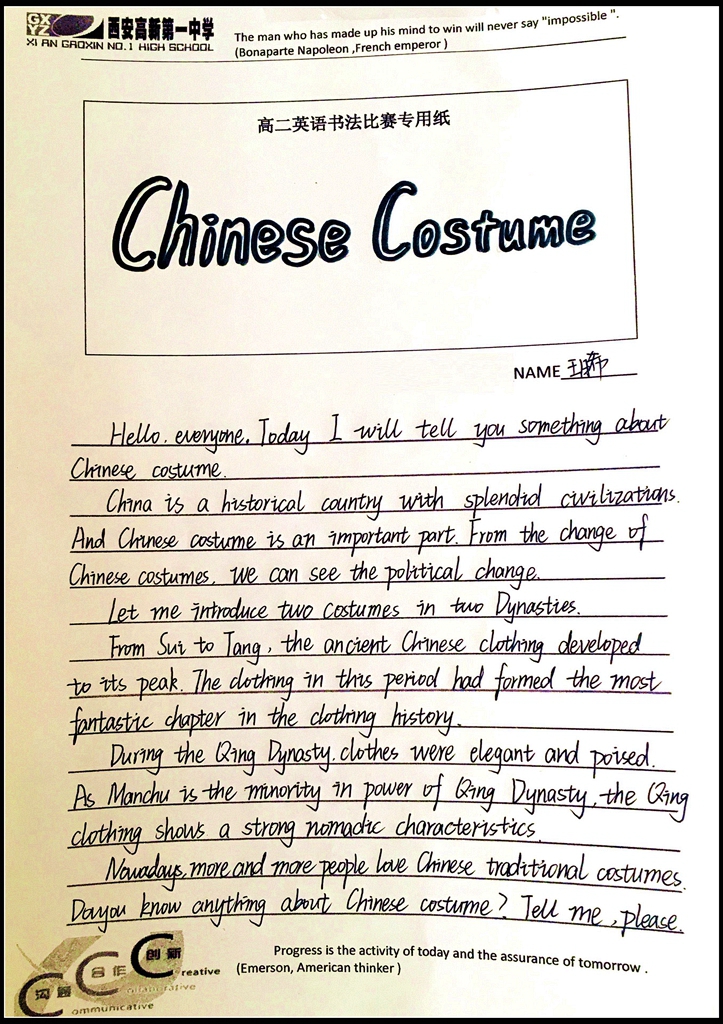 GX
YZ
西安高新第一中学
XI AN GAOXIN NO.1 HIGH SCHOOL
The man who has made up his mind to win will never say "impossible ".
(Bonaparte Napoleon ,French emperor )
高二英语书法比赛专用纸
Chinese Costume
NAME
Hello, everyone. Today I will tell you something about
Chinese costume.
China is a historical country with splendid civilizations.
And Chinese costume is an important part. From the change of
Chinese costumes, we can see the political change.
Let me introduce two costumes in two Dynasties.
From Sui to Tang, the ancient Chinese clothing developed
to its peak. The clothing in this period had formed the most
fantastic chapter in the clothing history.
During the Qing Dynasty, clothes were elegant and poised.
As Manchu is the minority in power of Qing Dynasty, the Qing
clothing shows a strong nomadic characteristics.
Nowadays, more and more people love Chinese traditional costumes.
Do you know anything about Chinese costume? Tell me, please.
Progress is the activity of today and the assurance of tomorrow .
(Emerson, American thinker )
创新
Creative
合作
Collaborative
沟通
Communicative